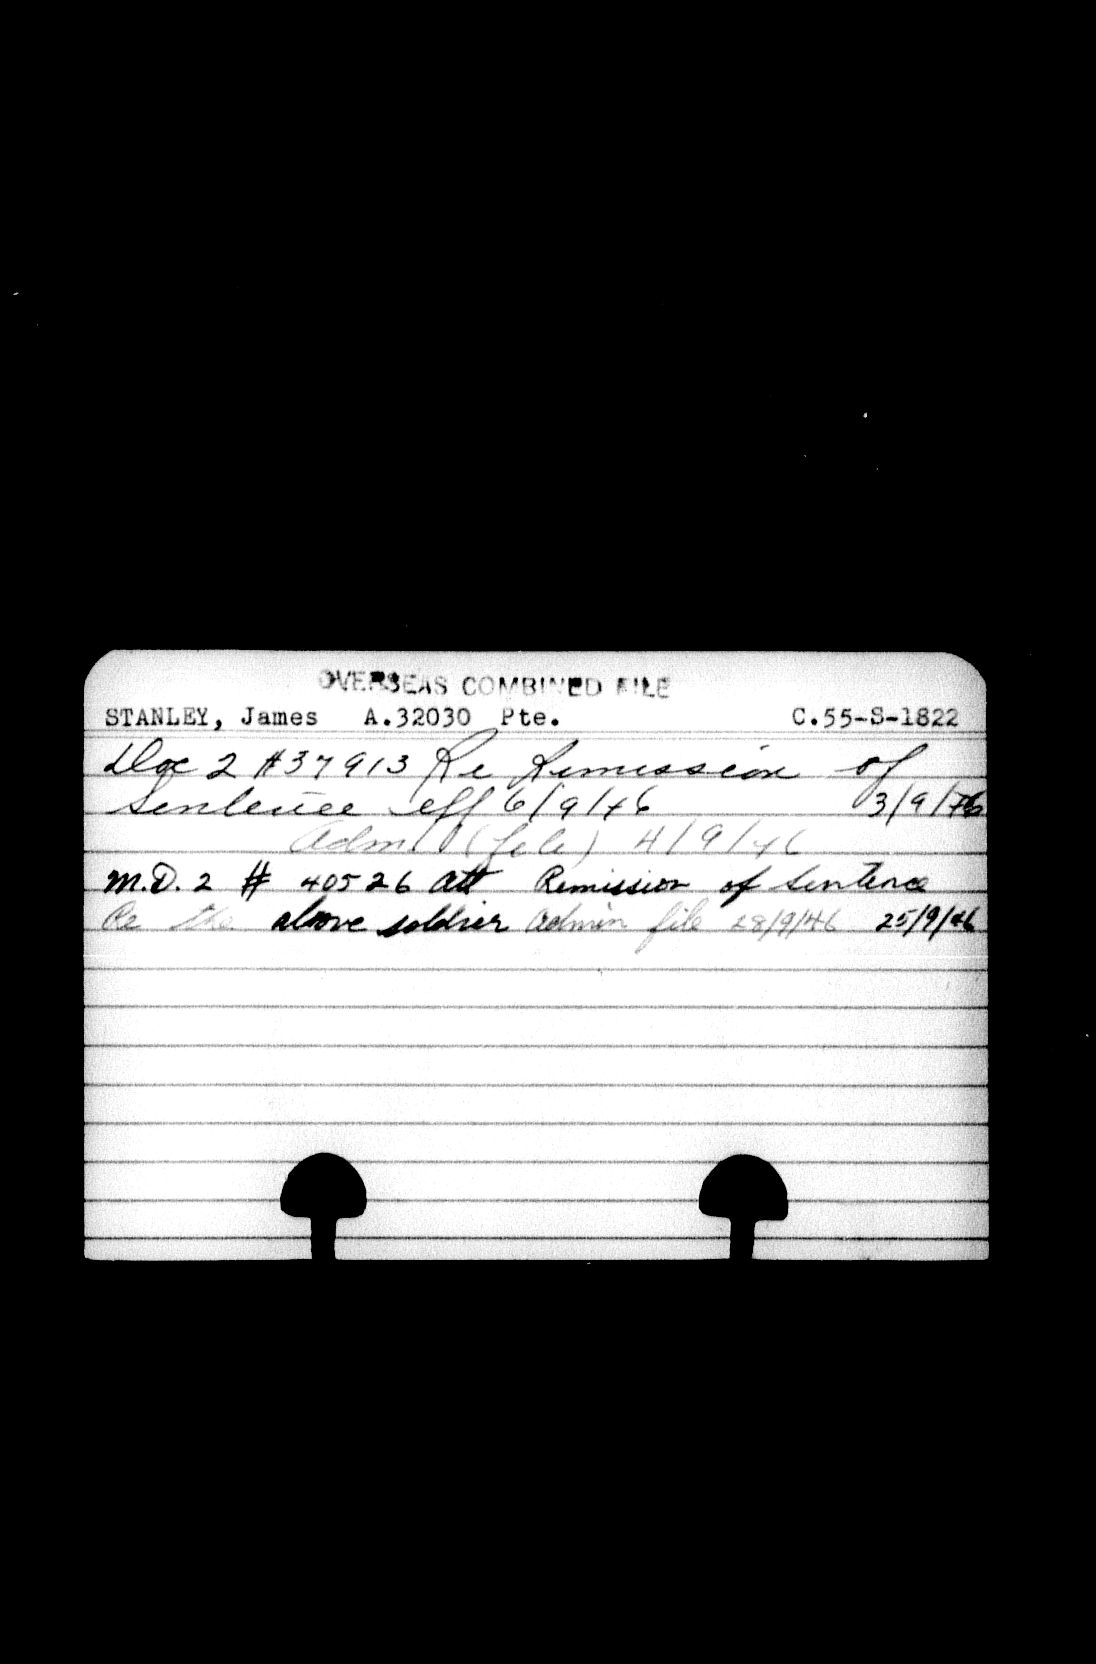 OVERSEAS COMBINED FILE
STANLEY, James A.32030 Pte. C.55-S-1822
Doc 2 #37913 Re Remission of
Sentence eff 6/9/46 3/9/46
Adm. (file) 4/9/46
M.D. 2 # 40526 att Remission of Sentence
Re the above soldier Admin file 28/9/46 25/9/46